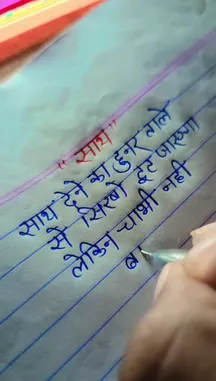 "साथ"
साथ देने का हुनर ताले
से सिखो टूट जाएगा
लेकिन चाभी नही
ब